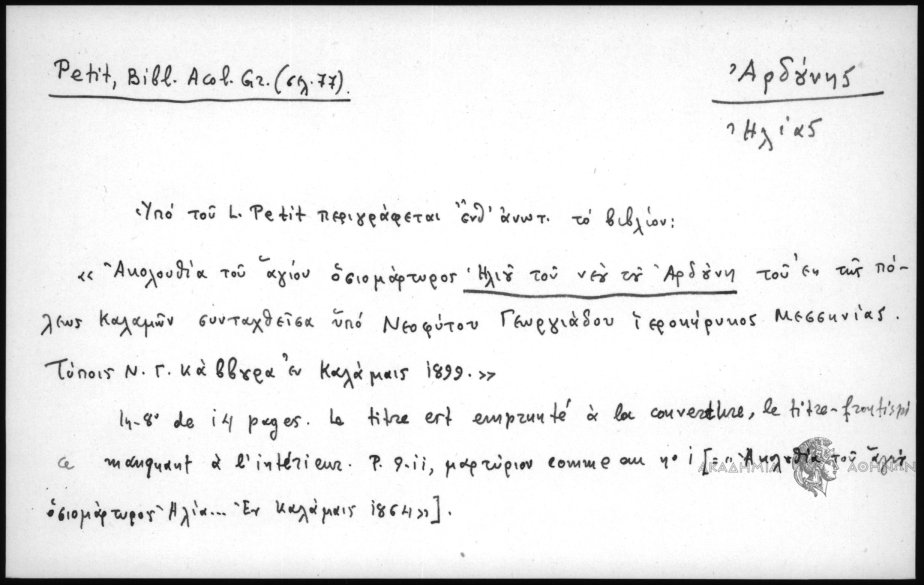 Petit, Bibl. Acol. Gr. (σελ. 77).
Ἀρδούνης
Ἠλίας
Ὑπό τοῦ L. Petit περιγράφεται ἔνθ' ἀνωτ. τό βιβλίον:
«Ἀκολουθία τοῦ ἁγίου ὁσιομάρτυρος Ἠλιοῦ τοῦ νέου τοῦ Ἀρδούνη τοῦ ἐκ τῆς πό-
λεως Καλαμῶν συνταχθεῖσα ὑπό Νεοφύτου Γεωργιάδου ἱεροκήρυκος Μεσσηνίας.
Τύποις Ν. Γ. Κάββουρα ἐν Καλάμαις 1899.»
In-8° de 14 pages. Le titre est emprunté à la couverture, le titre-frontispi
ce manquant à l'intérieur. P. 9-11, μαρτύριον comme au nº 1 [= «Ἀκολουθία τοῦ ἁγίου
ὁσιομάρτυρος Ἠλία... Ἐν Καλάμαις 1864»].
ΑΚΑΔΗΜΙΑ ΑΘΗΝΩΝ